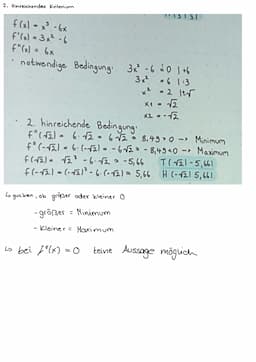 2. hinreichendes Kriterium
f(x) = x³ - 6x
f'(x) = 3x² - 6
f''(x) = 6x
· notwendige Bedingung: 3x² - 6 = 0 | +6
3x² = 6 | :3
x² = 2 | √
x1 = √2
x2 = -√2
· 2. hinreichende Bedingung:
f''(√2) = 6 · √2 = 6√2 = 8,49 > 0 → Minimum
f''(-√2) = 6 · (-√2) = -6√2 = -8,49 < 0 → Maximum
f(√2) = √2³ - 6 · √2 = -5,66 T(√2|-5,66)
f(-√2) = (-√2)³ - 6 · (-√2) = 5,66 H(-√2|5,66)
↳ gucken, ob größer oder kleiner 0
- größer = Minimum
- kleiner = Maximum
↳ bei f''(x) = 0 keine Aussage möglich